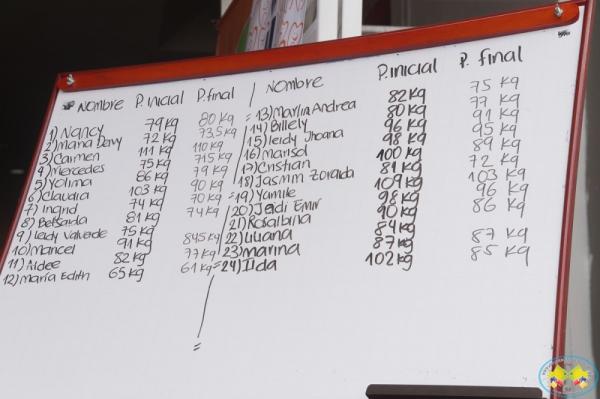 Nombre P. inicial P. final / Nombre P. inicial P. final
1) Nancy 79 kg 80 kg = 13) Marlin Andrea 82 kg 75 kg
2) Maria Deivy 72 kg 73,5 14) Billely 80 kg 77 kg
3) Carmen 111 kg 110 kg 15) leidy Jhoana 96 kg 91 kg
4) Mercedes 75 kg 71.5 kg 16) Marisol 98 kg 95 kg
5) Yolima 86 kg 79 kg 17) Cristian 100 kg 89 kg
6) Claudia 103 kg 90 kg 18) Jasmin Zoraida 81 kg 72 kg
7) Ingrid 74 kg 70 kg = 19) Yamile 109 kg 103 kg
8) Betsaida 81 kg 74 kg 20) Jeidi Emir 98 kg 96 kg
9) Leidy Valverde 75 kg 21) Rosalbina 90 kg 86 kg
10) Maricel 91 kg 84.5 kg 22) Liliana 84 kg
11) Aidee 82 kg 77 kg 23) marina 87 kg 87 kg
12) María Edith 65 kg 61 kg = 24) Ilda 102 kg 85 kg
=